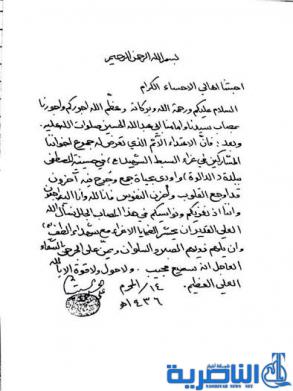 بسم الله الرحمن الرحيم
احبتنا اهالي الاحساء الكرام
السلام عليكم ورحمة الله وبركاته وعظّم الله اجوركم واجورنا
بمصاب سيدنا وامامنا ابي عبدالله الحسين صلوات الله عليه.
وبعد: فان الاعتداء الآثم الذي تعرض له جموع اخواننا
المشاركين في عزاء السبط الشهيد (ع) في حسينية المصطفى
ببلدة (الدالوة) واودى بحياة جمع وجرح فيه آخرون
قد اوجع القلوب واحزن النفوس فانا لله وانا اليه راجعون
واننا اذ نعزيكم ونواسيكم في هذا المصاب الجلل نسأل الله
العلي القدير ان يحشر الضحايا الاعزاء مع شهداء الطف
وان يلهم ذويهم الصبر والسلوان ويمن على الجرحى بالشفاء
العاجل انه سميع مجيب. ولا حول ولا قوة الا بالله
العلي العظيم.
١٤/ المحرم
١٤٣٦هـ
شبكة اخبار
الناصرية